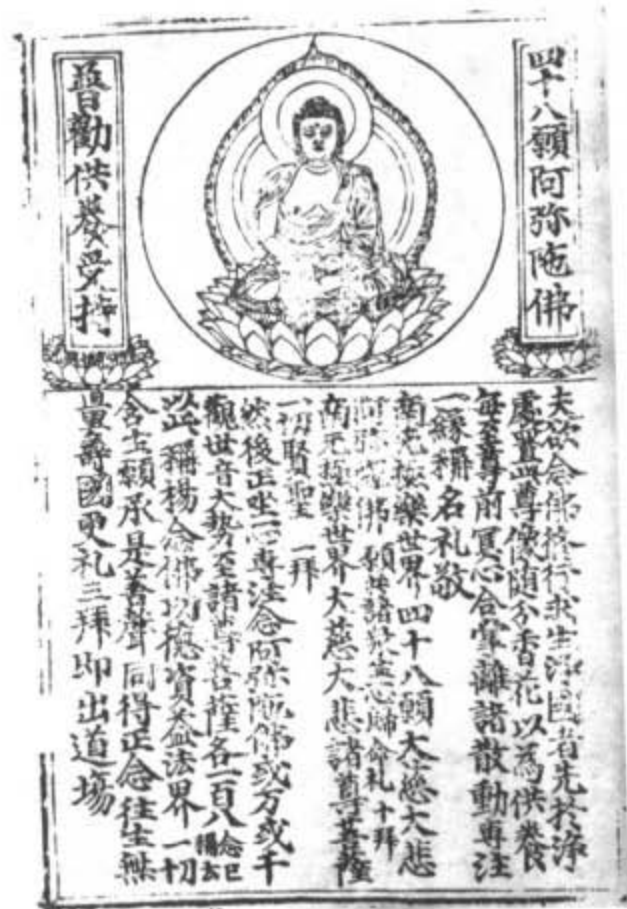 四十八願阿弥陁佛
普勸供養受持
夫欲念佛修行求生淨國者先於淨
處置此尊像随分香花以為供養
每至尊前冥心合掌離諸散動專注
一緣稱名礼敬
南无極樂世界四十八願大慈大悲
阿弥陁佛願共諸衆生一心歸命礼十拜
南无極樂世界大慈大悲諸尊菩薩
一切賢聖一拜
然後正坐一心專注念阿弥陁佛或万或千
觀世音大勢至諸尊菩薩各一百八念已
以此稱楊念佛功德資益法界一切
含生願承是善聲同得正念往生無
量壽國更礼三拜即出道場